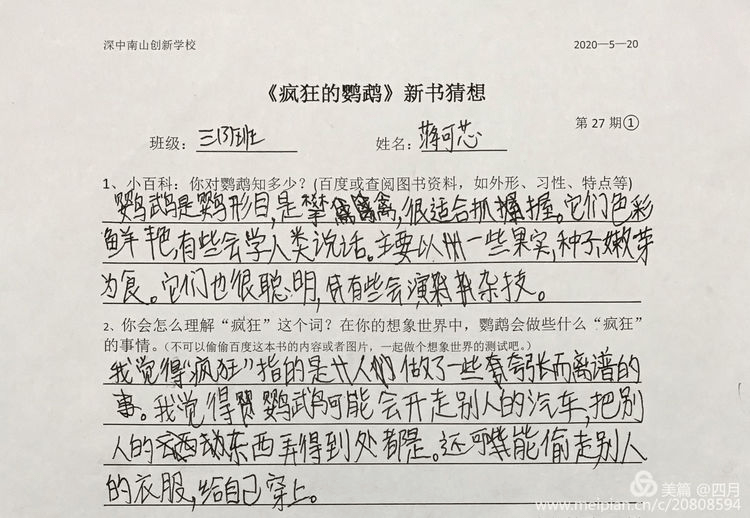 深中南山创新学校 2020—5—20
《疯狂的鹦鹉》新书猜想
第 27 期①
班级：三(3)班 姓名：蒋可芯
1、小百科：你对鹦鹉知多少？(百度或查阅图书资料，如外形、习性、特点等)
鹦鹉是鹦形目，是攀禽，很适合抓握。它们色彩
鲜艳，有些会学人类说话。主要以一些果实，种子，嫩芽
为食。它们也很聪明，有些会演杂技。
2、你会怎么理解“疯狂”这个词？在你的想象世界中，鹦鹉会做些什么“疯狂”
的事情。(不可以偷偷百度这本书的内容或者图片，一起做个想象世界的测试吧。)
我觉得“疯狂”指的是人们做了一些夸张而离谱的
事。我觉得鹦鹉可能会开走别人的汽车，把别
人的东西弄得到处都是。还可能偷走别人
的衣服，给自己穿上。
美篇 @四月
www.meipian.cn/c/20808594